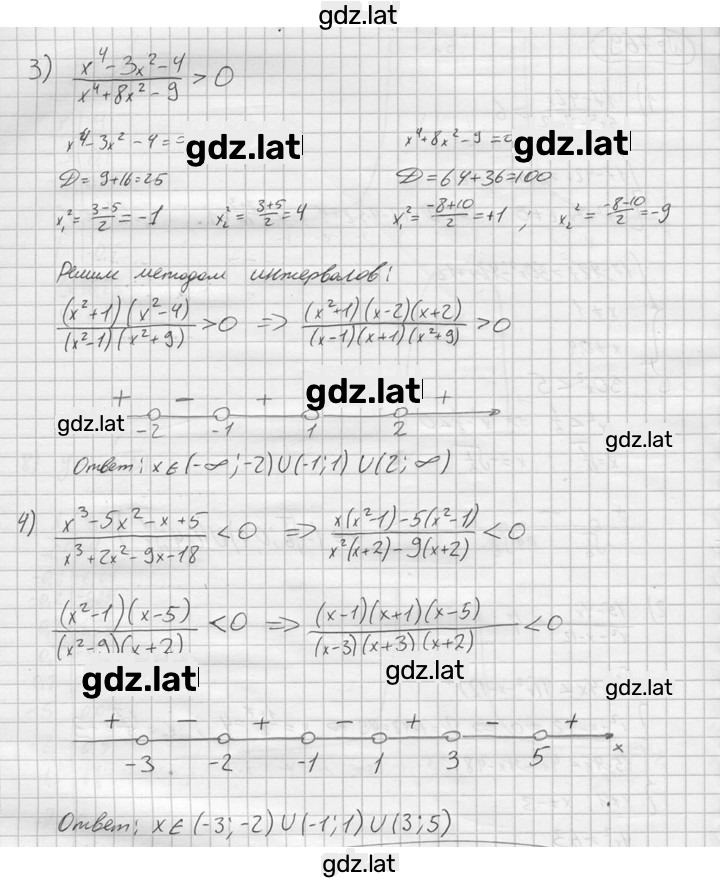 gdz.lat
3) (x⁴ - 3x² - 4)/(x⁴ + 8x² - 9) > 0
x⁴ - 3x² - 4 = gdz.lat x⁴ + 8x² - 9 = gdz.lat
D = 9+16=25 D = 64+36=100
x₁² = (3-5)/2 = -1 x₂² = (3+5)/2 = 4 x₁² = (-8+10)/2 = +1 ; x₂² = (-8-10)/2 = -9
Решим методом интервалов:
((x²+1)(x²-4))/((x²-1)(x²+9)) > 0 => ((x²+1)(x-2)(x+2))/((x-1)(x+1)(x²+9)) > 0
gdz.lat
+ - + +
gdz.lat -2 -1 1 2 gdz.lat
Ответ: x∈(-∞;-2)∪(-1;1)∪(2;∞)
4) (x³ - 5x² - x + 5)/(x³ + 2x² - 9x - 18) < 0 => (x(x²-1) - 5(x²-1))/(x²(x+2) - 9(x+2)) < 0
((x²-1)(x-5))/((x²-9)(x+2)) < 0 => ((x-1)(x+1)(x-5))/((x-3)(x+3)(x+2)) < 0
gdz.lat gdz.lat gdz.lat
+ - + - + - +
-3 -2 -1 1 3 5 x
Ответ: x∈(-3;-2)∪(-1;1)∪(3;5)
gdz.lat